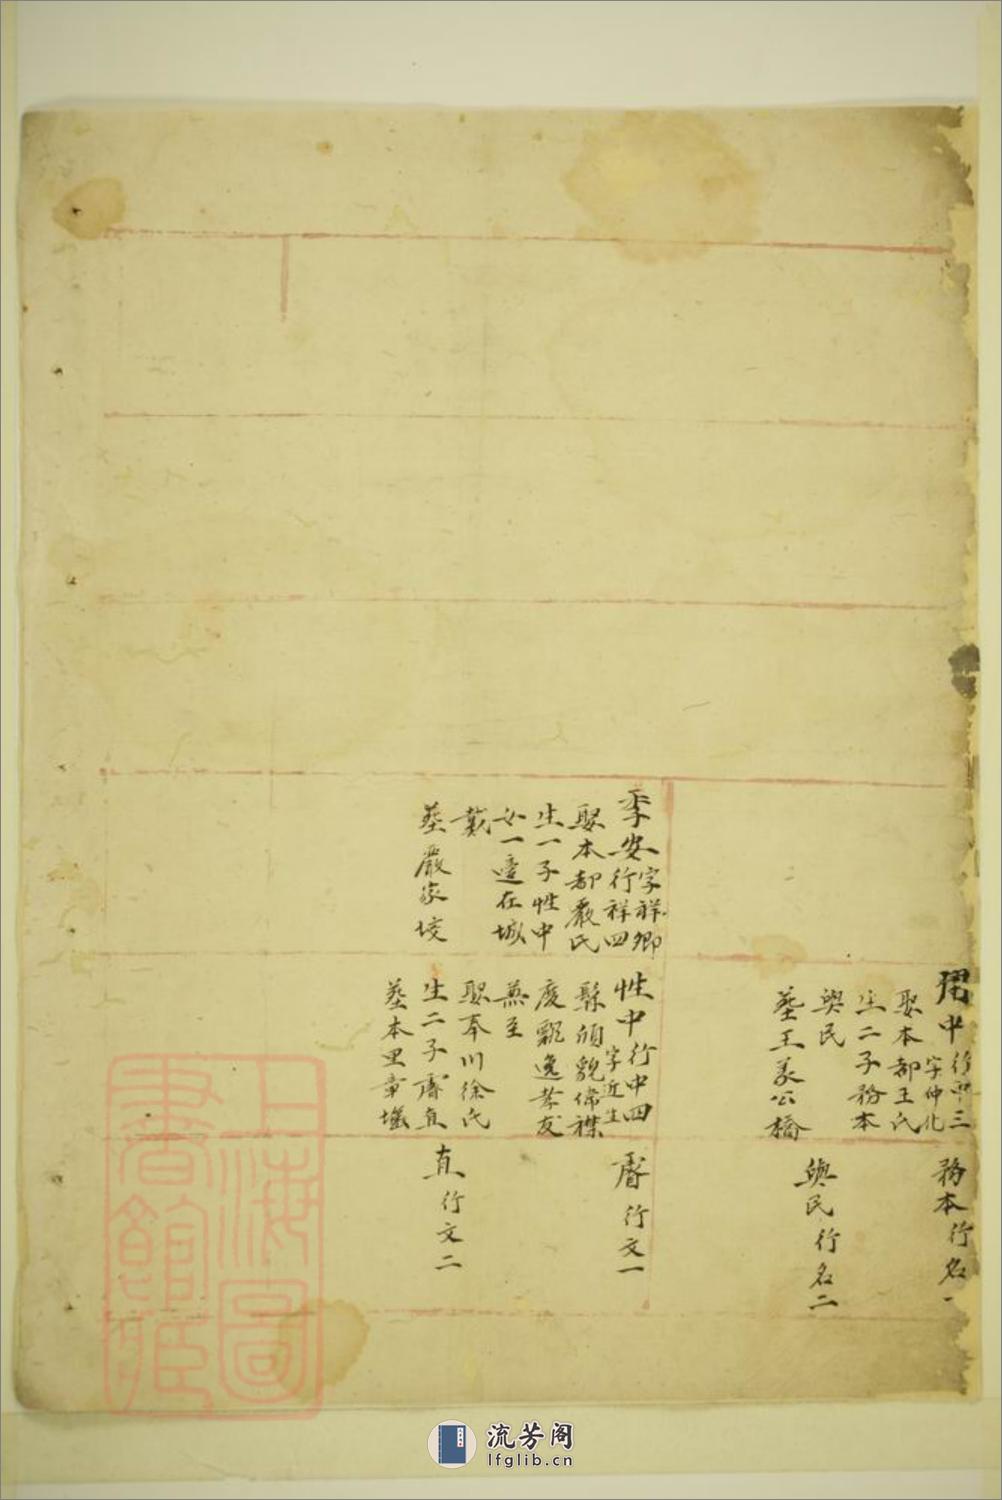 季安
字祥卿
行祥四
娶本都嚴氏
生一子性中
女一適在城
戴
葬嚴家坟
用中
字仲化
行中三
娶本都王氏
生二子務本
與民
葬王家公橋
性中
行中四
字近生
縣頎貌偉襟
度飄逸孝友
兼至
娶奉川徐氏
生二子睿直
葬本里章堰
務本
行名一
與民
行名二
睿
行文一
直
行文二
上海圖
書館藏
流芳阁
lfglib.cn